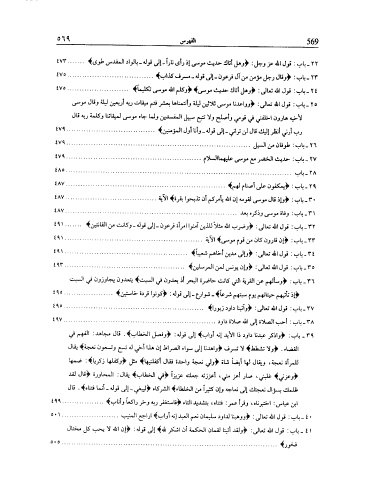 ٥٦٩ الفهرس 569
٢٢ ـ باب: قول الله عز وجل: ﴿وهل أتاك حديث موسى إذ رأى ناراً ـ إلى قوله ـ بالواد المقدس طوى﴾ ٤٧٣
٢٣ ـ باب: ﴿وقال رجل مؤمن من آل فرعون ـ إلى قوله ـ مسرف كذاب﴾ ٤٧٥
٢٤ ـ باب: قول الله تعالى: ﴿وهل أتاك حديث موسى﴾ ﴿وكلم الله موسى تكليماً﴾ ٤٧٥
٢٥ ـ باب: قول الله تعالى: ﴿وواعدنا موسى ثلاثين ليلة وأتممناها بعشر فتم ميقات ربه أربعين ليلة وقال موسى
لأخيه هارون اخلفني في قومي وأصلح ولا تتبع سبيل المفسدين ولما جاء موسى لميقاتنا وكلمه ربه قال
رب أرني أنظر إليك قال لن تراني ـ إلى قوله ـ وأنا أول المؤمنين﴾ ٤٧٩
٢٦ ـ باب: طوفان من السيل ٤٧٩
٢٧ ـ باب: حديث الخضر مع موسى عليهما السلام ٤٧٩
٢٨ ـ باب ٤٨٥
٢٩ ـ باب: ﴿يعكفون على أصنام لهم﴾ ٤٨٦
٣٠ ـ باب: ﴿وإذ قال موسى لقومه إن الله يأمركم أن تذبحوا بقرة﴾ الآية ٤٨٧
٣١ ـ باب: وفاة موسى وذكره بعد ٤٨٧
٣٢ ـ باب: قول الله تعالى: ﴿وضرب الله مثلاً للذين آمنوا امرأة فرعون ـ إلى قوله ـ وكانت من القانتين﴾ ٤٩١
٣٣ ـ باب: ﴿إن قارون كان من قوم موسى﴾ الآية ٤٩١
٣٤ ـ باب: قول الله تعالى: ﴿وإلى مدين أخاهم شعيباً﴾ ٤٩١
٣٥ ـ باب: قول الله تعالى: ﴿وإن يونس لمن المرسلين﴾ ٤٩٣
٣٦ ـ باب: ﴿وسألهم عن القرية التي كانت حاضرة البحر إذ يعدون في السبت﴾ يتعدون يجاوزون في السبت
﴿إذ تأتيهم حيتانهم يوم سبتهم شرعاً﴾ ـ شوارع ـ إلى قوله: ﴿كونوا قردة خاسئين﴾ ٤٩٥
٣٧ ـ باب: قول الله تعالى: ﴿وآتينا داود زبورا﴾ ٤٩٥
٣٨ ـ باب: أحب الصلاة إلى الله صلاة داود ٤٩٧
٣٩ ـ باب: ﴿واذكر عبدنا داود ذا الأيد إنه أواب﴾ إلى قوله: ﴿وفصل الخطاب﴾. قال مجاهد: الفهم في
القضاء. ﴿ولا تشطط﴾ لا تسرف ﴿واهدنا إلى سواء الصراط إن هذا أخي له تسع وتسعون نعجة﴾ يقال
للمرأة نعجة، ويقال لها أيضاً شاة ﴿ولي نعجة واحدة فقال أكفلنيها﴾ مثل ﴿وكفلها زكريا﴾: ضمها
﴿وعزني﴾ غلبني، صار أعز مني، أعززته جعلته عزيزاً ﴿في الخطاب﴾ يقال: المحاورة ﴿قال لقد
ظلمك بسؤال نعجتك إلى نعاجه وإن كثيراً من الخلطاء﴾ الشركاء ﴿ليبغي ـ إلى قوله ـ أنما فتناه﴾. قال
ابن عباس: اختبرناه، وقرأ عمر: فتناه، بتشديد التاء ﴿فاستغفر ربه وخر راكعاً وأناب﴾ ٤٩٩
٤٠ ـ باب: قول الله تعالى: ﴿ووهبنا لداود سليمان نعم العبد إنه أواب﴾ الراجع المنيب ٥٠١
٤١ ـ باب: قول الله تعالى: ﴿ولقد آتينا لقمان الحكمة أن اشكر لله﴾ إلى قوله: ﴿إن الله لا يحب كل مختال
فخور﴾ ٥٠٥